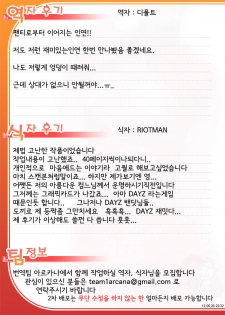 역자 후기
역자 : 디폴트
팬티로부터 이어지는 인연!!
저도 저런 재미있는인연 한번 만나봤음 좋겠네요.
나도 저렇게 엉덩이 때려줘...
근데 상대가 없으니 안될꺼야...ㅠ.
식자 후기
식자 : RIOTMAN
제법 고난한 작품이었습니다
작업내용이 고난했죠.. 40페이지씩이나되다니..
개인적으로 마음에드는 이야기라 고퀄로 해보고싶었습니다
마치 스캔본처럼말이죠... 하지만 제가보기엔 영..
어쨋든 저의 아름다운 컴느님께서 운명하시기직전입니다
그저께는 그래픽카드가 나갔죠.. 아마 DAYZ 라는게임
때문인듯 합니다.. 그나저나 DAYZ 쌤짓다...
도끼로 제 등짝좀 그만치세요 흑흑흑... DAYZ 재밋다...
제 후기가 이상해도 쓸껀 다 씁니다 훗훗..
팀 정보
번역팀 아르카나에서 함께 작업하실 역자, 식자님을 모집합니다
관심이 있으신 분들은 team1arcana@gmail.com 로
연락주시기 바랍니다
2차 배포는 무단 수정을 하지 않는 한 얼마든지 배포 가능합니다